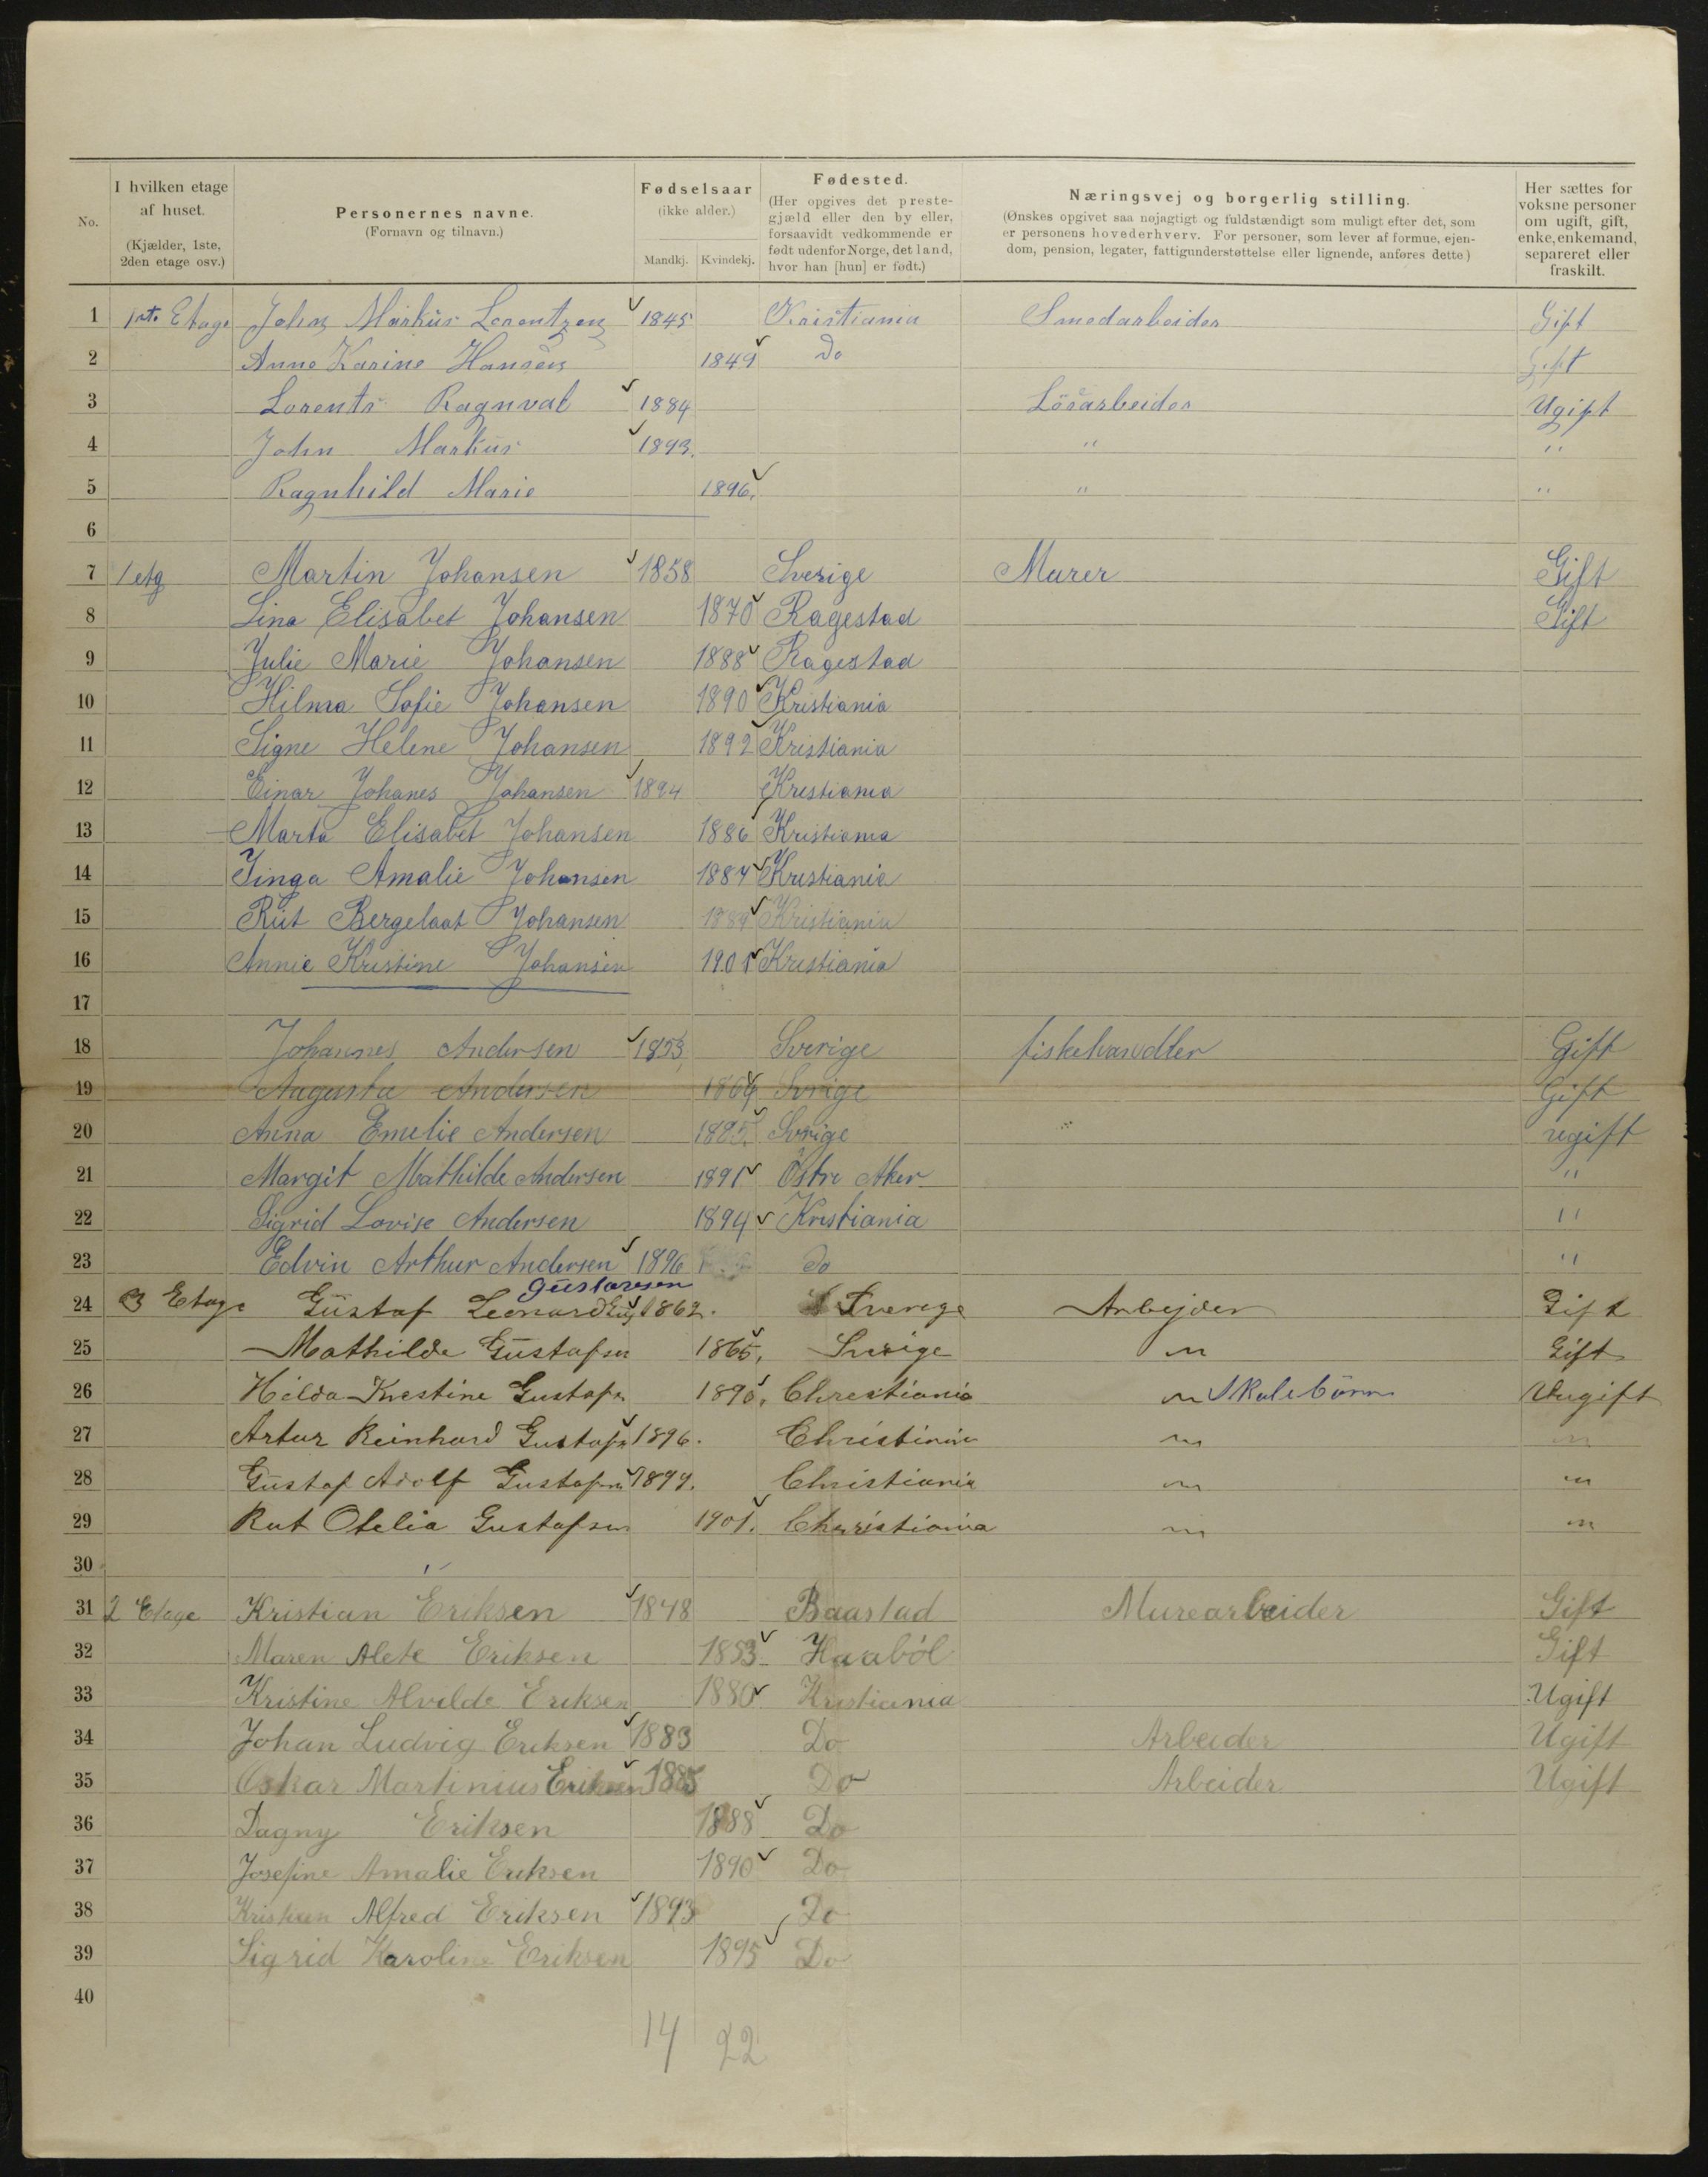 No.
I hvilken etage af huset. (Kjælder, 1ste, 2den etage osv.)
Personernes navne. (Fornavn og tilnavn.)
Fødselsaar (ikke alder.)
Mandkj. Kvindekj.
Fødested. (Her opgives det prestegjæld eller den by eller, forsaavidt vedkommende er født udenfor Norge, det land, hvor han [hun] er født.)
Næringsvej og borgerlig stilling. (Ønskes opgivet saa nøjagtigt og fuldstændigt som muligt efter det, som er personens hovederhverv. For personer, som lever af formue, ejendom, pension, legater, fattigunderstøttelse eller lignende, anføres dette.)
Her sættes for voksne personer om ugift, gift, enke, enkemand, separeret eller fraskilt.
1 1st. Etage John Markus Lorentzen 1845 Kristiania Smedarbeider Gift
2 Anne Karine Hansen 1849 Do Gift
3 Lorents Ragnval 1884 Lösarbeider Ugift
4 John Markus 1893. " "
5 Ragnhild Marie 1896. " "
6
7 1 etg Martin Johansen 1858 Sverige Murer Gift
8 Lina Elisabet Johansen 1870 Ragestad Gift
9 Julie Marie Johansen 1888 Ragestad
10 Hilma Sofie Johansen 1890 Kristiania
11 Signe Helene Johansen 1892 Kristiania
12 Einar Johanes Johansen 1894 Kristiania
13 Marta Elisabet Johansen 1886 Kristiania
14 Jinga Amalie Johansen Kristiania
15 Rut Bergelaat Johansen Kristiania
16 Annie Kristine Johansen 1901 Kristiania
17
18 Johannes Andersen 1853 Sverige fiskehandler Gift
19 Augusta Andersen Sverige Gift
20 Anna Emelie Andersen 1885. Sverige " ugift
21 Margit Mathilde Andersen 1891 Östre Aker "
22 Sigrid Lovise Andersen 1894 Kristiania "
23 Edvin Arthur Andersen 1896 Do "
Gustavsen
24 3 Etage Gustaf Leonard 1862. Sverege Arbejder Gift
25 Mathilde Gustafsen 1865. Sverige " Gift
26 Hilda Krestine Gustafsn 1890. Chrestiania " Skolebörn Uugift
27 Artur Reinhard Gustafsn 1896. Christiania " "
28 Gustaf Adolf Gustafsn 1899. Christiania " "
29 Rut Otelia Gustafsen 1901. Chrristiania " "
30
31 2 Etage Kristian Eriksen 1848 Baastad Murearbeider Gift
32 Maren Alete Eriksen 1853 Haaböl Gift
33 Kristine Alvilde Eriksen 1880 Kristiania Ugift
34 Johan Ludvig Eriksen 1883 Do Arbeider Ugift
35 Oskar Martinius Eriksen 1885 Do Arbeider Ugift
36 Dagny Eriksen 1888 Do
37 Josefine Amalie Eriksen 1890 Do
38 Kristian Alfred Eriksen 1893 Do
39 Sigrid Karoline Eriksen 1895 Do
40
14 22